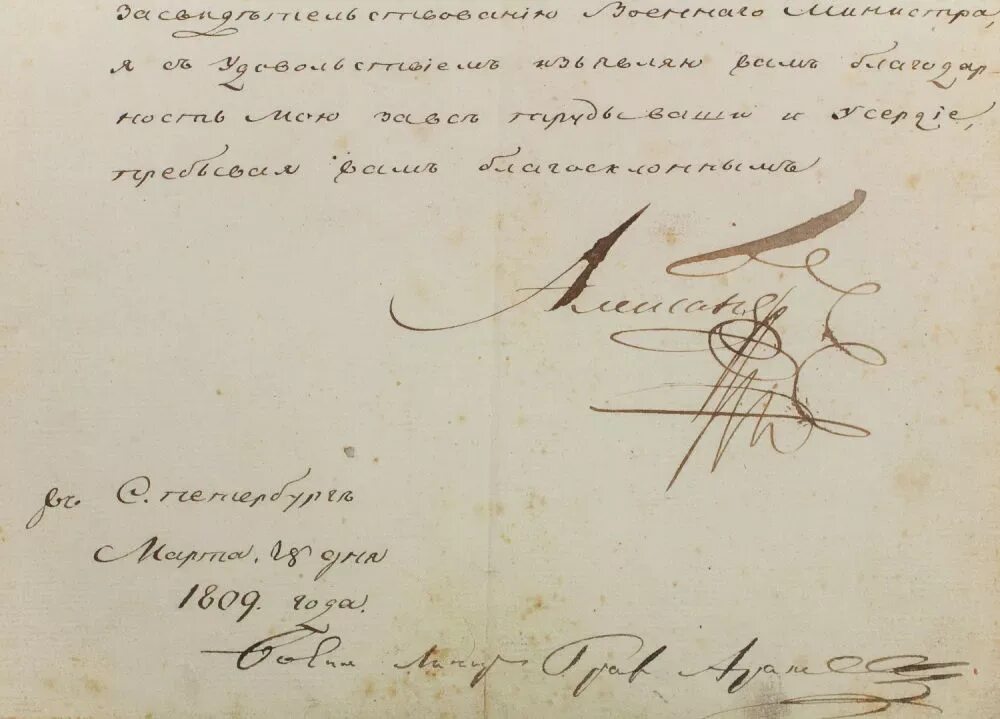 Засвидѣтельствованію Военнаго Министра,
я съ Удовольствіемъ изъявляю вамъ благодар-
ность мою за всѣ труды ваши и Усердіе,
пребывая вамъ благосклоннымъ
Александр
въ С. петербургѣ
Марта. 28 дня
1809. года.
Воен Мини Граф Арак